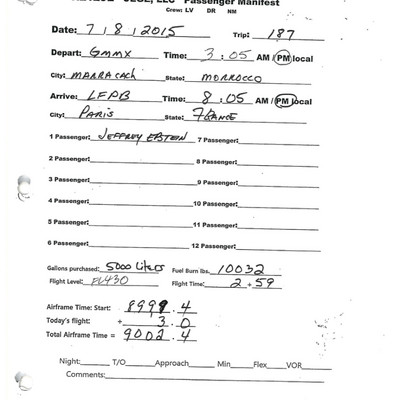 LLC Passenger Manifest
Crew: LV DR NM
Date: 7 / 8 / 2015 Trip: 187
Depart: GMMX Time: 3 : 05 AM / PM local
City: MARRACACH State: MORROCCO
Arrive: LFPB Time: 8 : 05 AM / PM local
City: PARIS State: FRANCE
1 Passenger: JEFFREY EPSTEIN 7 Passenger:
2 Passenger: 8 Passenger:
3 Passenger: 9 Passenger:
4 Passenger: 10 Passenger:
5 Passenger: 11 Passenger:
6 Passenger: 12 Passenger:
Gallons purchased: 5000 Liters Fuel Burn lbs. 10032
Flight Level: FL430 Flight Time: 2 + 59
Airframe Time: Start: 8999.4
Today's flight: + 3.0
Total Airframe Time = 9002.4
Night: T/O Approach Min Flex VOR
Comments: